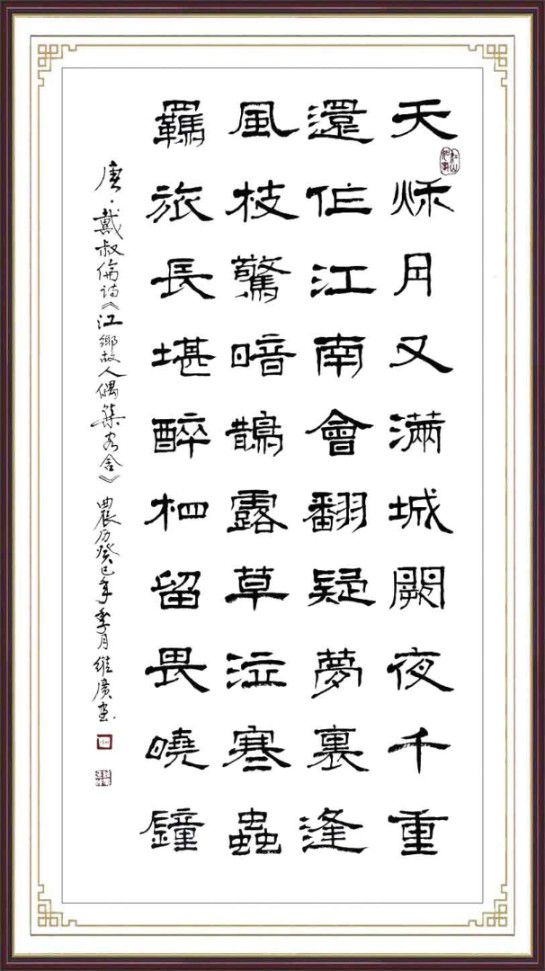 天秋月又滿城闕夜千重
還作江南會翻疑夢裏逢
風枝驚暗鵲露草泣寒蟲
羈旅長堪醉相留畏曉鐘
唐·戴叔倫诗《江鄉故人偶集客舍》農历癸巳年季月維廣書